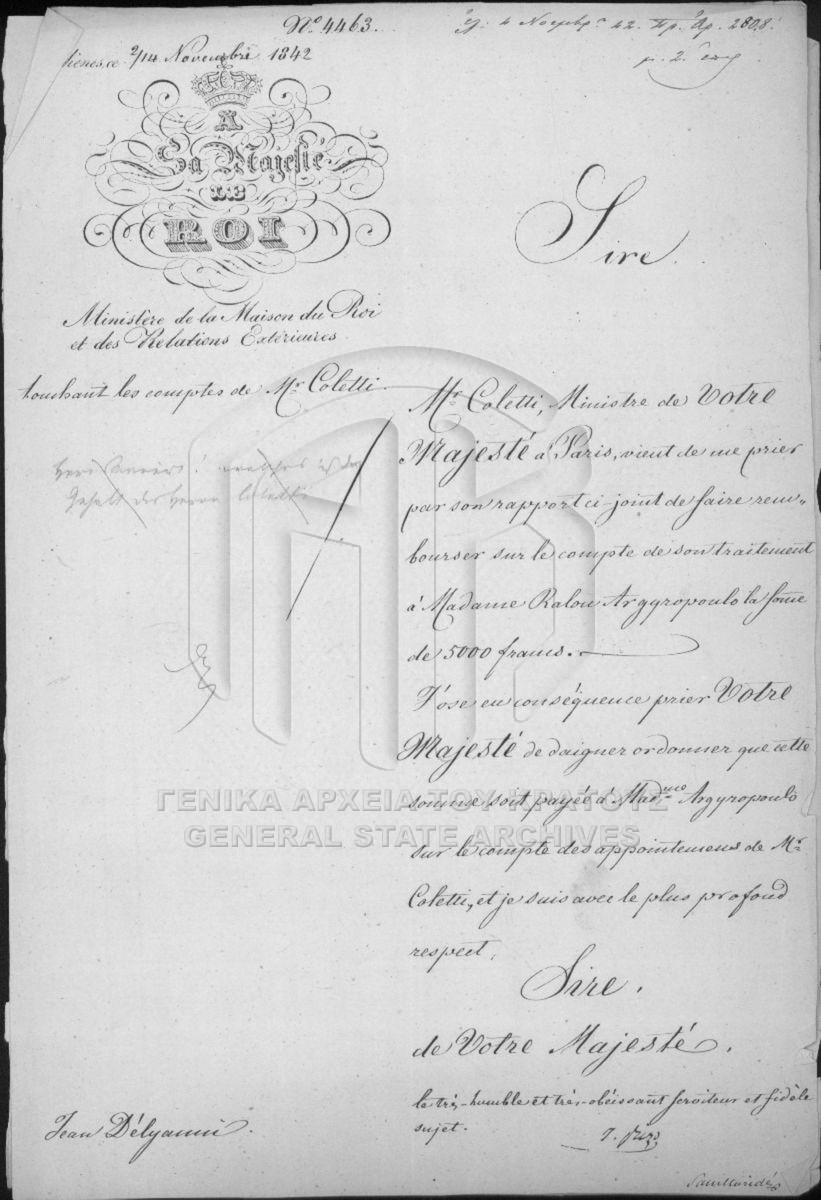 Nº 4463.
ce 2/14 Novembre 1842
A
Sa Majesté
LE
ROI
Ministère de la Maison du Roi
et des Relations Extérieures
touchant les comptes de Mr. Coletti.
Gehalt des Herrn Coletti
Sire.
Mr. Coletti, Ministre de Votre
Majesté à Paris, vient de me prier
par son rapport ci-joint de faire rem„
bourser sur le compte de son traitement
à Madame Ralou Argyropoulo la some
de 5000 francs.
J'ose en conséquence prier Votre
Majesté de daigner ordonner que cette
somme soit payée à Mad.me Argyropoulo
sur le compte des appointemens de Mr.
Coletti, et je suis avec le plus profond
respect,
Sire.
de Votre Majesté.
le très-humble et très-obéissant serviteur et fidèle
sujet.
Jean Délyanni.
ΓΕΝΙΚΑ ΑΡΧΕΙΑ ΤΟΥ ΚΡΑΤΟΥΣ
GENERAL STATE ARCHIVES